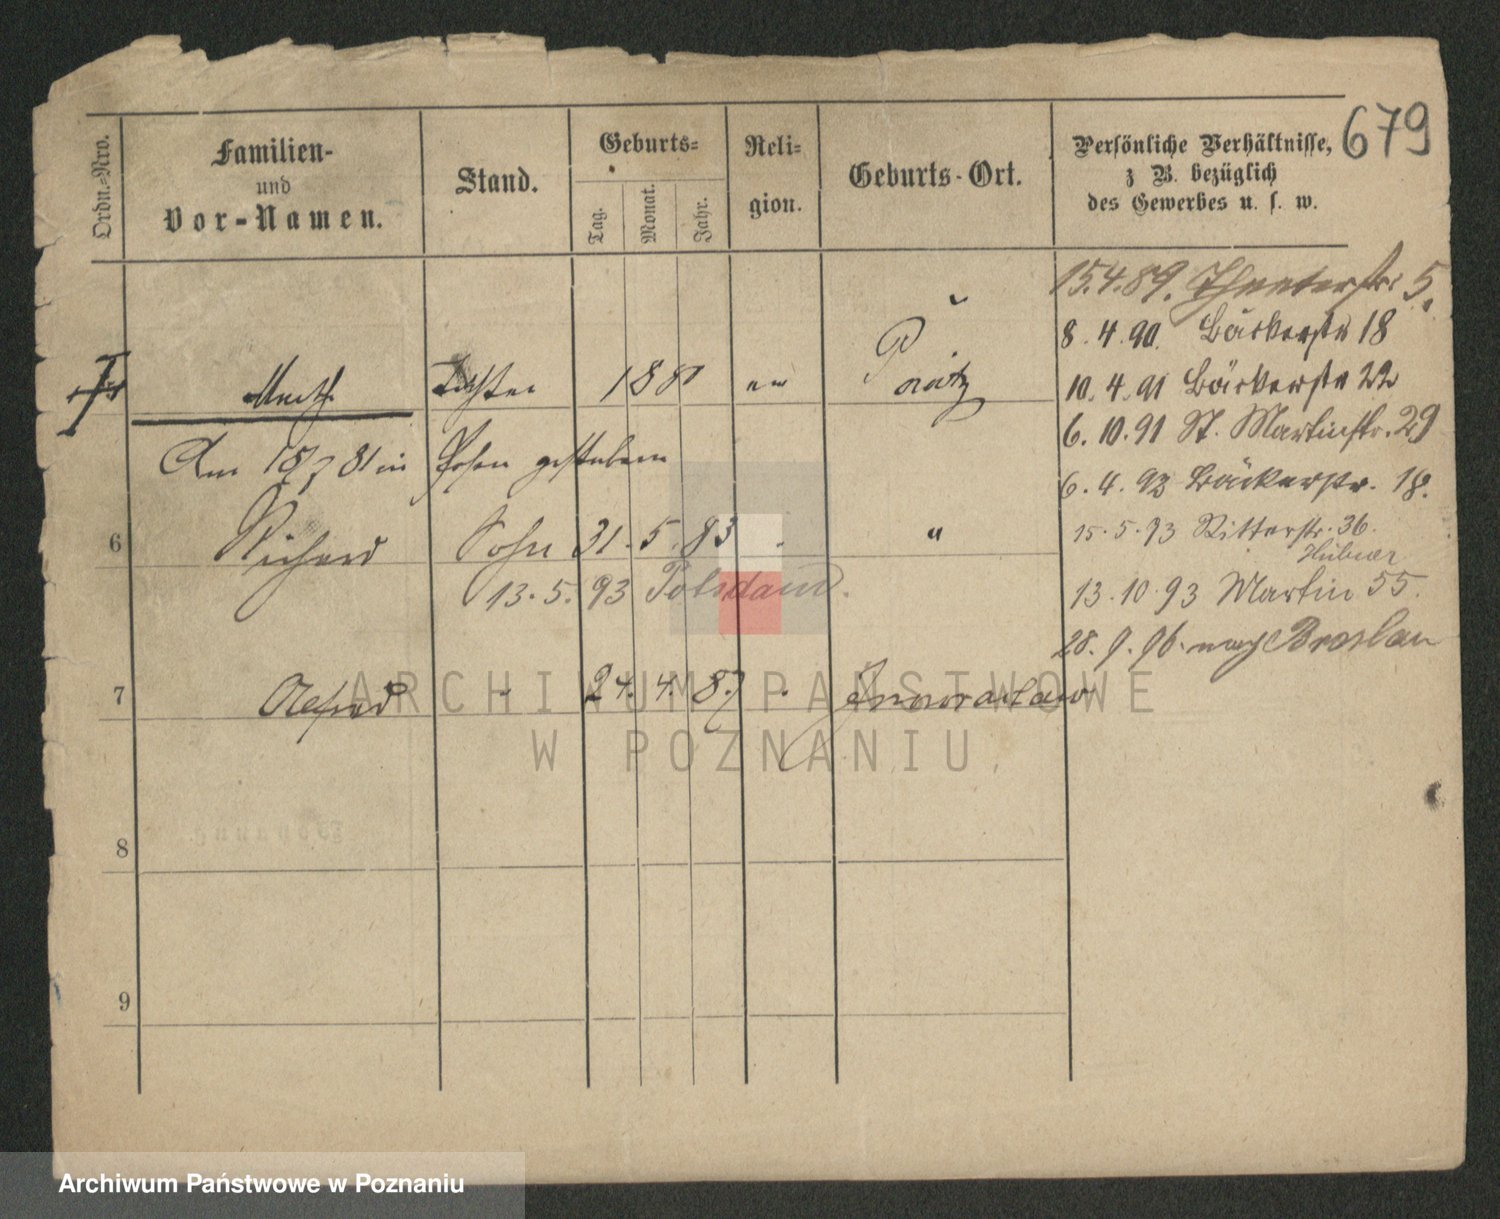 679
Ordn.-Nro.
Familien-
und
Vor-Namen.
Stand.
Geburts-
Tag.
Monat.
Jahr.
Reli-
gion.
Geburts-Ort.
Persönliche Verhältnisse,
z. B. bezüglich
des Gewerbes u. s. w.
Tochter 188 ev
Am 18/7 81 in Posen gestorben
6 Richard Sohn 31. 5. 83 "
13. 5. 93 Potsdam.
7 Alfred " 24. 4. 87 " Inowraclaw
8
9
15.4.89. Theaterstr. 5.
8. 4. 90. Bäckerstr 18
10. 4. 91 Bäckerstr 22
6. 10. 91 St. Martinstr. 29
6. 4. 92 Bäckerstr. 18.
15. 5. 93 Ritterstr. 36.
Hübner
13. 10. 93 Martin 55.
28. 9. 96. nach Breslau
ARCHIWUM PAŃSTWOWE
W POZNANIU
Archiwum Państwowe w Poznaniu